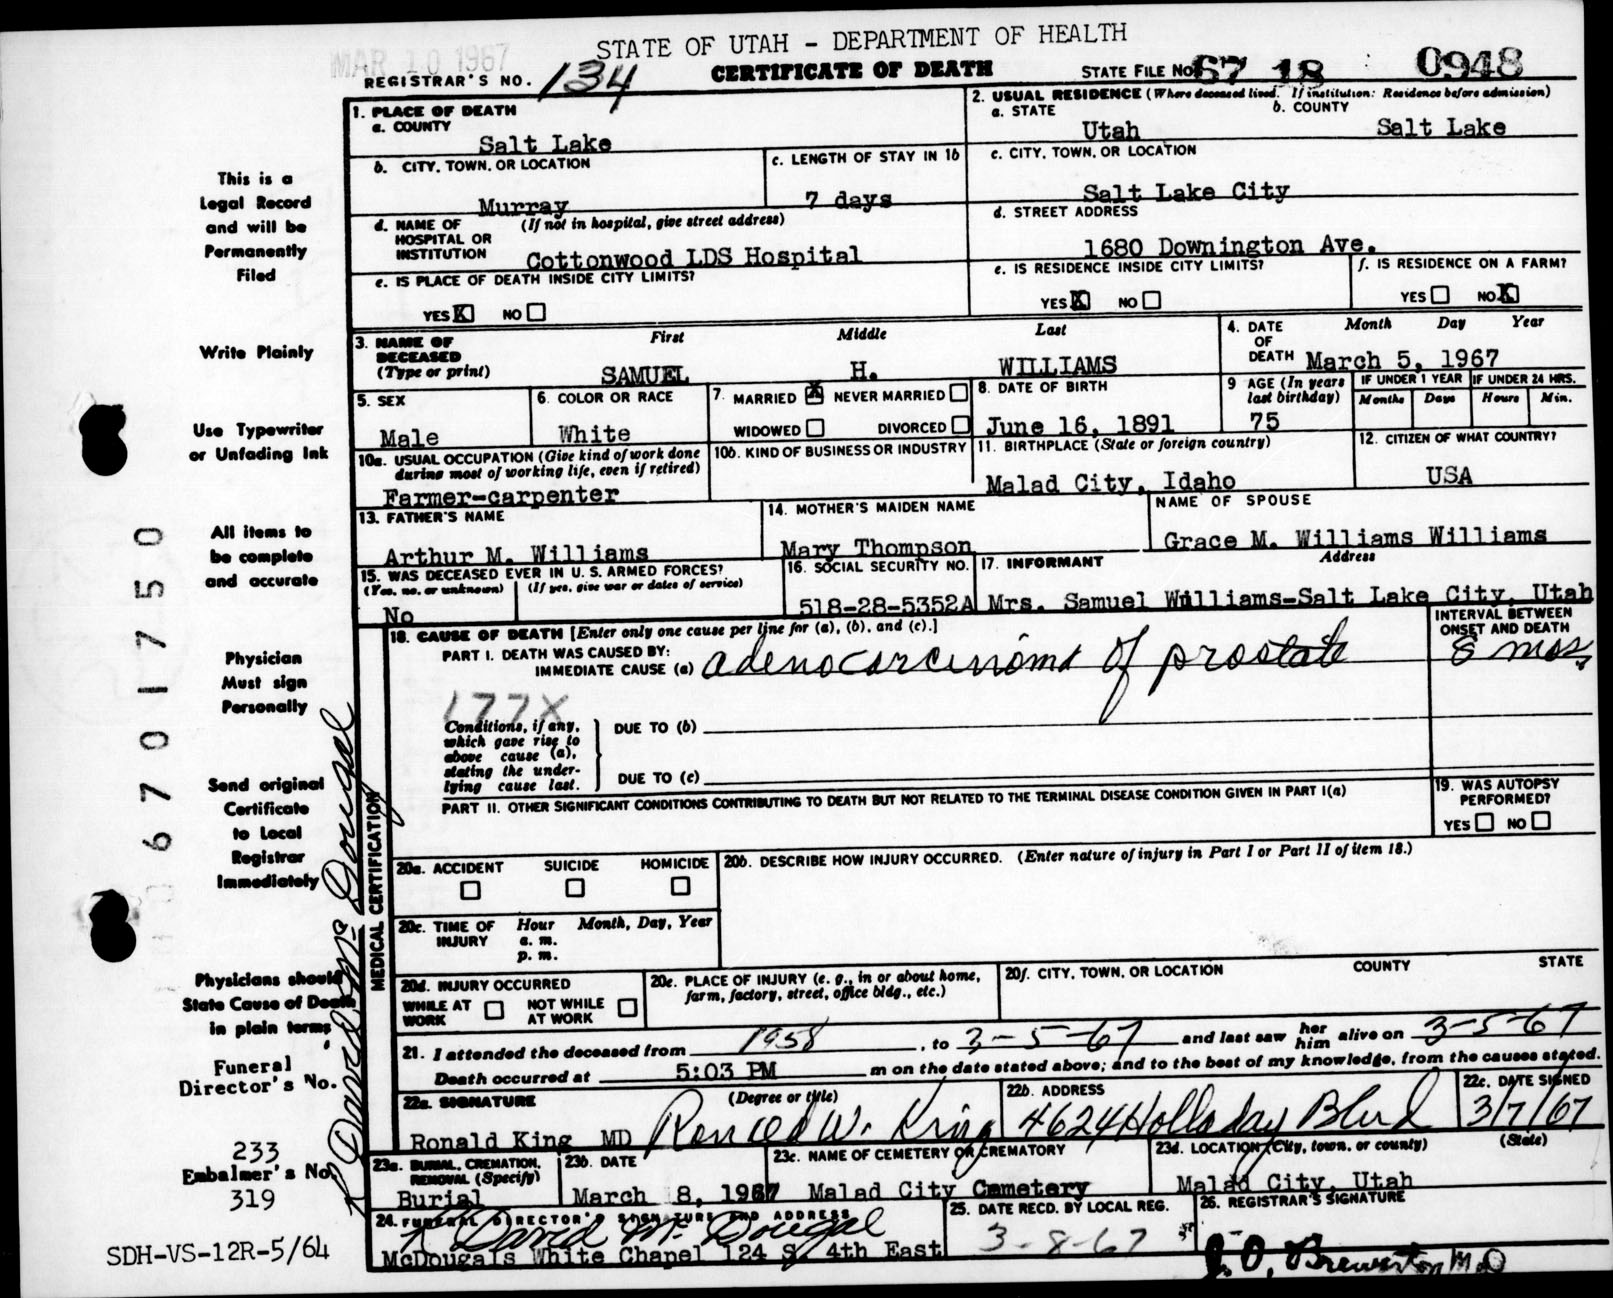 STATE OF UTAH - DEPARTMENT OF HEALTH
MAR 10 1967
REGISTRAR'S NO. 134
CERTIFICATE OF DEATH
STATE FILE NO. 67 18 0948
1. PLACE OF DEATH
a. COUNTY
Salt Lake
2. USUAL RESIDENCE (Where deceased lived. If institution: Residence before admission)
a. STATE
Utah
b. COUNTY
Salt Lake
b. CITY, TOWN, OR LOCATION
Murray
c. LENGTH OF STAY IN 1b
7 days
c. CITY, TOWN, OR LOCATION
Salt Lake City
d. NAME OF HOSPITAL OR INSTITUTION
(If not in hospital, give street address)
Cottonwood LDS Hospital
d. STREET ADDRESS
1680 Downington Ave.
e. IS PLACE OF DEATH INSIDE CITY LIMITS?
YES X NO
e. IS RESIDENCE INSIDE CITY LIMITS?
YES X NO
f. IS RESIDENCE ON A FARM?
YES NO X
3. NAME OF DECEASED
(Type or print)
First Middle Last
SAMUEL H. WILLIAMS
4. DATE OF DEATH
Month Day Year
March 5, 1967
5. SEX
Male
6. COLOR OR RACE
White
7. MARRIED X NEVER MARRIED
WIDOWED DIVORCED
8. DATE OF BIRTH
June 16, 1891
9 AGE (In years last birthday)
75
IF UNDER 1 YEAR
Months Days
IF UNDER 24 HRS.
Hours Min.
10a. USUAL OCCUPATION (Give kind of work done during most of working life, even if retired)
Farmer-carpenter
10b. KIND OF BUSINESS OR INDUSTRY
11. BIRTHPLACE (State or foreign country)
Malad City, Idaho
12. CITIZEN OF WHAT COUNTRY?
USA
13. FATHER'S NAME
Arthur M. Williams
14. MOTHER'S MAIDEN NAME
Mary Thompson
NAME OF SPOUSE
Grace M. Williams Williams
15. WAS DECEASED EVER IN U. S. ARMED FORCES?
(Yes, no, or unknown) (If yes, give war or dates of service)
No
16. SOCIAL SECURITY NO.
518-28-5352A
17. INFORMANT Address
Mrs. Samuel Williams-Salt Lake City, Utah
MEDICAL CERTIFICATION
18. CAUSE OF DEATH [Enter only one cause per line for (a), (b), and (c).]
PART I. DEATH WAS CAUSED BY:
IMMEDIATE CAUSE (a) adenocarcinoma of prostate
INTERVAL BETWEEN ONSET AND DEATH
8 mos,
177X
Conditions, if any, which gave rise to above cause (a), stating the underlying cause last.
DUE TO (b)
DUE TO (c)
PART II. OTHER SIGNIFICANT CONDITIONS CONTRIBUTING TO DEATH BUT NOT RELATED TO THE TERMINAL DISEASE CONDITION GIVEN IN PART I(a)
19. WAS AUTOPSY PERFORMED?
YES NO
20a. ACCIDENT SUICIDE HOMICIDE
20b. DESCRIBE HOW INJURY OCCURRED. (Enter nature of injury in Part I or Part II of item 18.)
20c. TIME OF INJURY
Hour Month, Day, Year
a. m.
p. m.
20d. INJURY OCCURRED
WHILE AT WORK NOT WHILE AT WORK
20e. PLACE OF INJURY (e. g., in or about home, farm, factory, street, office bldg., etc.)
20f. CITY, TOWN, OR LOCATION COUNTY STATE
21. I attended the deceased from 1958, to 3-5-67 and last saw her him alive on 3-5-67
Death occurred at 5:03 PM m on the date stated above; and to the best of my knowledge, from the causes stated.
22a. SIGNATURE (Degree or title)
Ronald King MD Ronald W. King
22b. ADDRESS
4624 Holladay Blvd
22c. DATE SIGNED
3/7/67
23a. BURIAL, CREMATION, REMOVAL (Specify)
Burial
23b. DATE
March 8, 1967
23c. NAME OF CEMETERY OR CREMATORY
Malad City Cemetery
23d. LOCATION (City, town, or county) (State)
Malad City, Utah
24. FUNERAL DIRECTOR'S SIGNATURE AND ADDRESS
R David McDougal
McDougals White Chapel 124 S 4th East
25. DATE RECD. BY LOCAL REG.
3-8-67
26. REGISTRAR'S SIGNATURE
J. O. Brewerton MD
This is a
Legal Record
and will be
Permanently
Filed
Write Plainly
Use Typewriter
or Unfading Ink
All items to
be complete
and accurate
Physician
Must sign
Personally
Send original
Certificate
to Local
Registrar
Immediately
Physicians should
State Cause of Death
in plain terms
Funeral
Director's No.
233
Embalmer's No.
319
SDH-VS-12R-5/64
6701750
R David McDougal